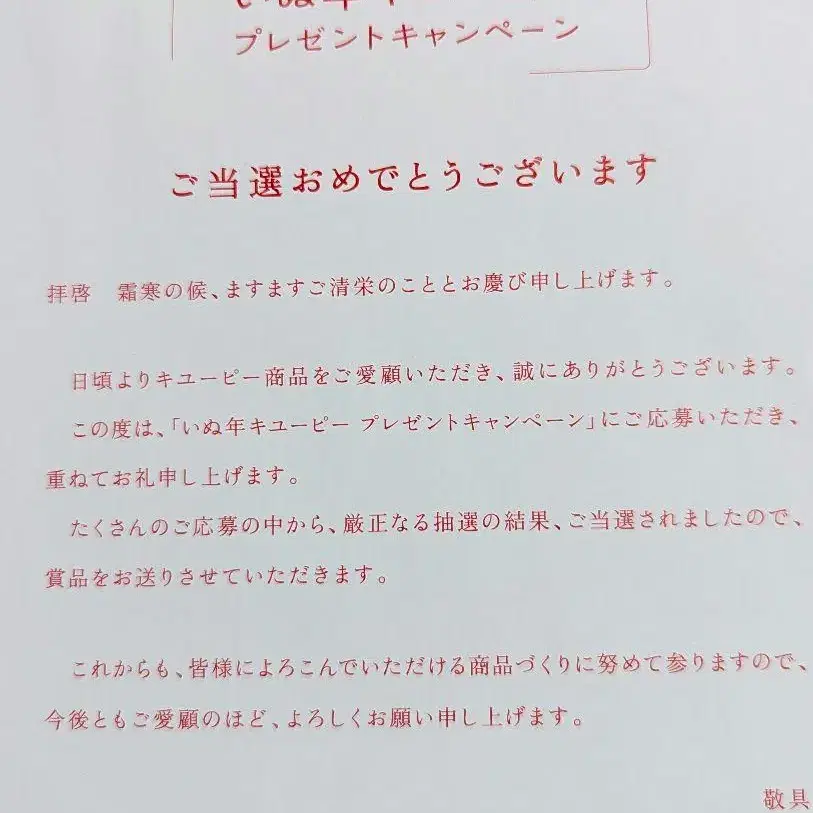 プレゼントキャンペーン
ご当選おめでとうございます
拝啓　霜寒の候、ますますご清栄のこととお慶び申し上げます。
日頃よりキユーピー商品をご愛顧いただき、誠にありがとうございます。
この度は、「いぬ年キユーピー プレゼントキャンペーン」にご応募いただき、
重ねてお礼申し上げます。
たくさんのご応募の中から、厳正なる抽選の結果、ご当選されましたので、
賞品をお送りさせていただきます。
これからも、皆様によろこんでいただける商品づくりに努めて参りますので、
今後ともご愛顧のほど、よろしくお願い申し上げます。
敬具